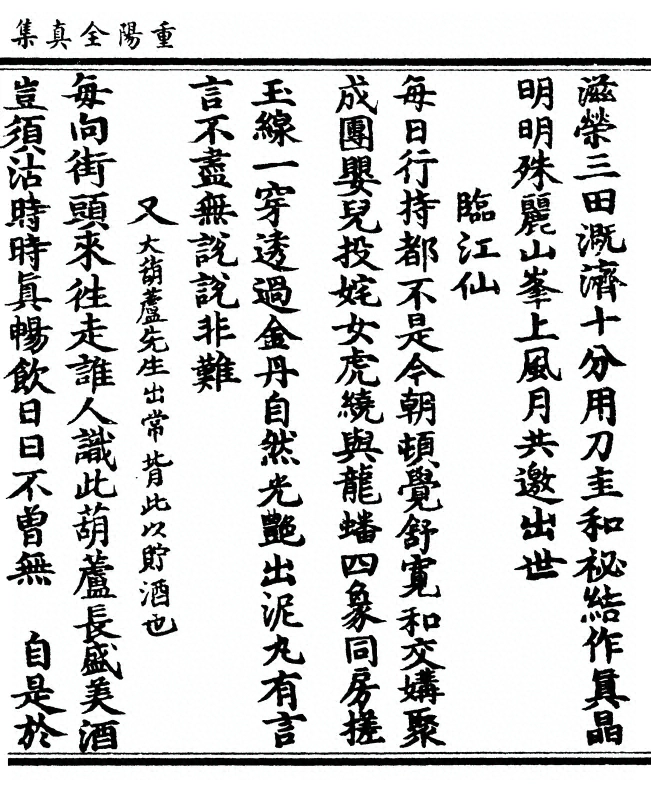 重陽全真集
滋榮三田溉濟十分用刀圭和祕結作眞晶
明明殊麗山峯上風月共邀出世
臨江仙
每日行持都不是今朝頓覺舒寬和交媾聚
成團嬰兒投姹女虎繞與龍蟠四象同房搓
玉線一穿透過金丹自然光艷出泥丸有言
言不盡無說說非難
又大葫蘆先生出常背此以貯酒也
每向街頭來往走誰人識此葫蘆長盛美酒
豈須沽時時眞暢飲日日不曾無　自是於